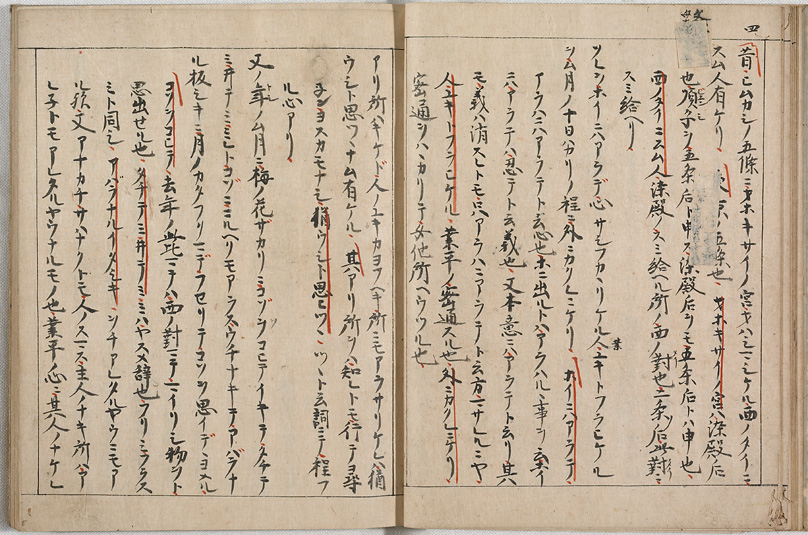 四
昔ヒムカシノ五條ニヲホキサイノ宮ヲハシマシケル西ノタイニ
スム人有ケリ 京ノ五条也 ヲホキサイノ宮ハ染殿后
也順子ヲ五条后ト申ス染殿后ヲモ五条后トハ申也
西ノタイニスム人染殿ノスミ給ヘル所ノ西ノ對也二条ノ后此對ニ
スミ給ヘリ
ソレヲホイニハアラデ心サシフカヽリケル人ユキトフラヒケル
業
ヲム月ノ十日ハカリノ程ニ外ニカクレニケリ ホイニハアラテ
アラハニハアラテト云心也ホニ出ルトハアラハルヽ事ヲ云ホイ
ニハアラテハ忍テト云義也又本意ニハアラテト云リ其
モ義ハ消スヒトモ只アラハニアラテト云方マサレルニヤ
人ユキトフラヒケル 業平ノ密通スル也外ニカクレニケリ
密通ヲハヽカリテ女他所ヘウツル也
アリ所ハキケド人ノユキカヨフヘキ所ニモアラサリケレハ猶
ウシト思ツヽナム有ケル 其アリ所ヲハ知レトモ行テヨ尋
ヨスカモナシ 猶ウシト思ヒツヽ ツヽト云詞ニテ程フ
ル心アリ
又ノ年ノム月ニ梅ノ花ザカリニコゾヲコヒテイキテタチテ
ミ井テミミレトコゾニニルヘクモアラズウチナキテアバラナ
ル板シキニ月ノカタフクマデフセリテコゾヲ思イデヽヨメル
コゾヲコヒテ 去年ノ此マテハ西ノ對ニマイリシ物ヲト
思出セル也 タチテミ井テミミハヤスメ辞也
ミト同シ アバラナルイタシキ チアレタルヤウニモア
ル歟又アナカチサハナクトモ人スマス主人ナキ所ハア
レネトモアレタルヤウナルモノ也業平ノ心ニ其人ノナケレ